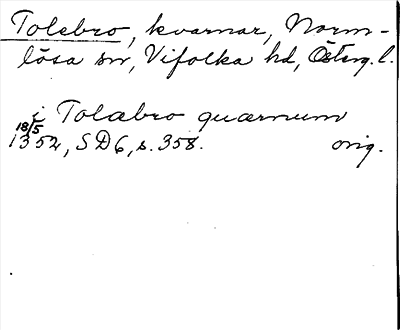 Tolebro, kvarnar, Norm-
lösa sn, Vifolka hd, Österg. l.
i Tolæbro quærnum
18/5 1352, SD6, s. 358. orig.